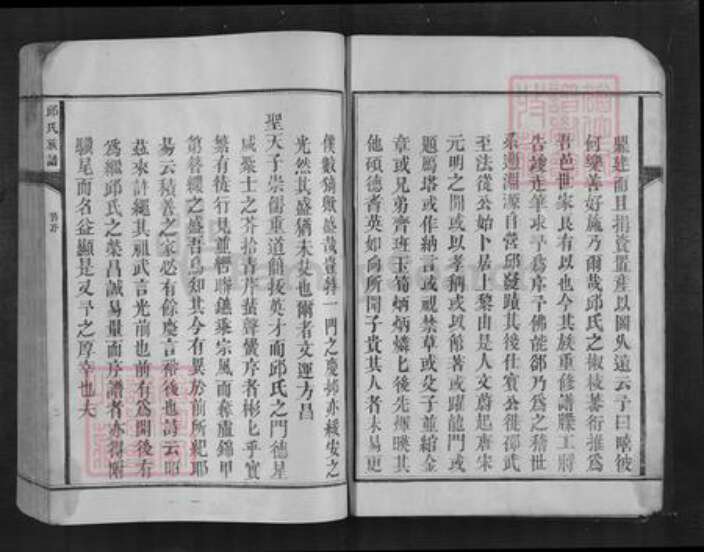 嚴建而且捐資置產以圖久遠云予曰嘻彼
何樂善好施乃爾哉邱氏之椒枝蕃衍推為
吾邑世家良有以也今其族重修譜牒工將
告竣走筆求予為序予佛能卻乃為之稽世
系遡淵源自營邱發蹟其後仕實公從
至法從公始卜居上黎由是人文蔚起唐宋
元明之間或以孝稱或以節著或躍龍門或
題鴈塔或作納言或視禁草或父子並綰金
章或兄弟齊班玉筍炳炳燐七後先輝暎其
他碩德耆英如向所聞子貴其人者未易更
僕數猗歟盛哉豈特一門之慶抑亦綏安之
光然其盛猶未艾也爾者文運方昌
聖天子崇儒重道簡拔英才而邱氏之門德星
咸聚士之芥拾青岸蜚聲黌序者彬七乎實
繁有徒行見並轡聯鑣乘宗風而奪盧錦甲
第簪纓之盛吾烏知其今有異於前所紀耶
易云積善之家必有餘慶言裕後也詩云昭
茲來許繩其祖武言光前也前有為開後有
為繼邱氏之榮昌誠易量而序譜者亦得附
驥尾而名益顯是又予之厚幸也夫
邱氏族譜